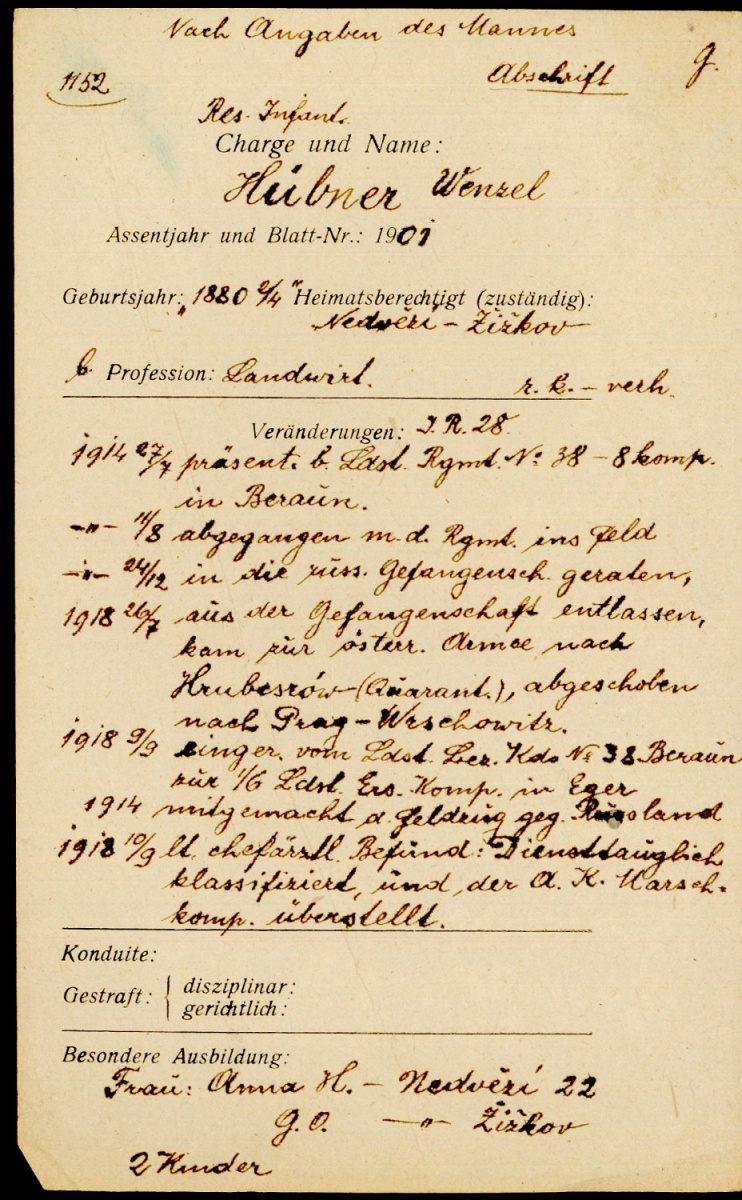 Nach Angaben des Mannes
1152
Abschrift
g.
Res. Infant.
Charge und Name:
Hübner Wenzel
Assentjahr und Blatt-Nr.: 1901
Geburtsjahr: 1880 2/4 Heimatsberechtigt (zuständig):
Nedvězí - Žižkov
b. Profession: Landwirt.
r. k. - verh.
Veränderungen: I. R. 28.
1914 27/7 präsent. b. Ldst. Rgmt. No 38 - 8 komp.
in Beraun.
-"- 11/8 abgegangen m. d. Rgmt. ins Feld
-"- 24/12 in die russ. Gefangensch. geraten,
1918 26/7 aus der Gefangenschaft entlassen,
kam zur österr. Armee nach
Hrubesrów - (Quarant.), abgeschoben
nach Prag - Wrschowitz.
1918 9/9 einger. vom Ldst. Bez. Kdo No 38 Beraun
zur 1/6 Ldst. Ers. Komp. in Eger
1914 mitgemacht d. Feldzug geg. Russland
1918 10/9 lt. chefärztl. Befund: Diensttauglich
klassifiziert, und der A. K. Marsch-
komp. überstellt.
Konduite:
Gestraft: { disziplinar:
gerichtlich:
Besondere Ausbildung:
Frau: Anna H. - Nedvězí 22
G. O. -"- Žižkov
2 Kinder